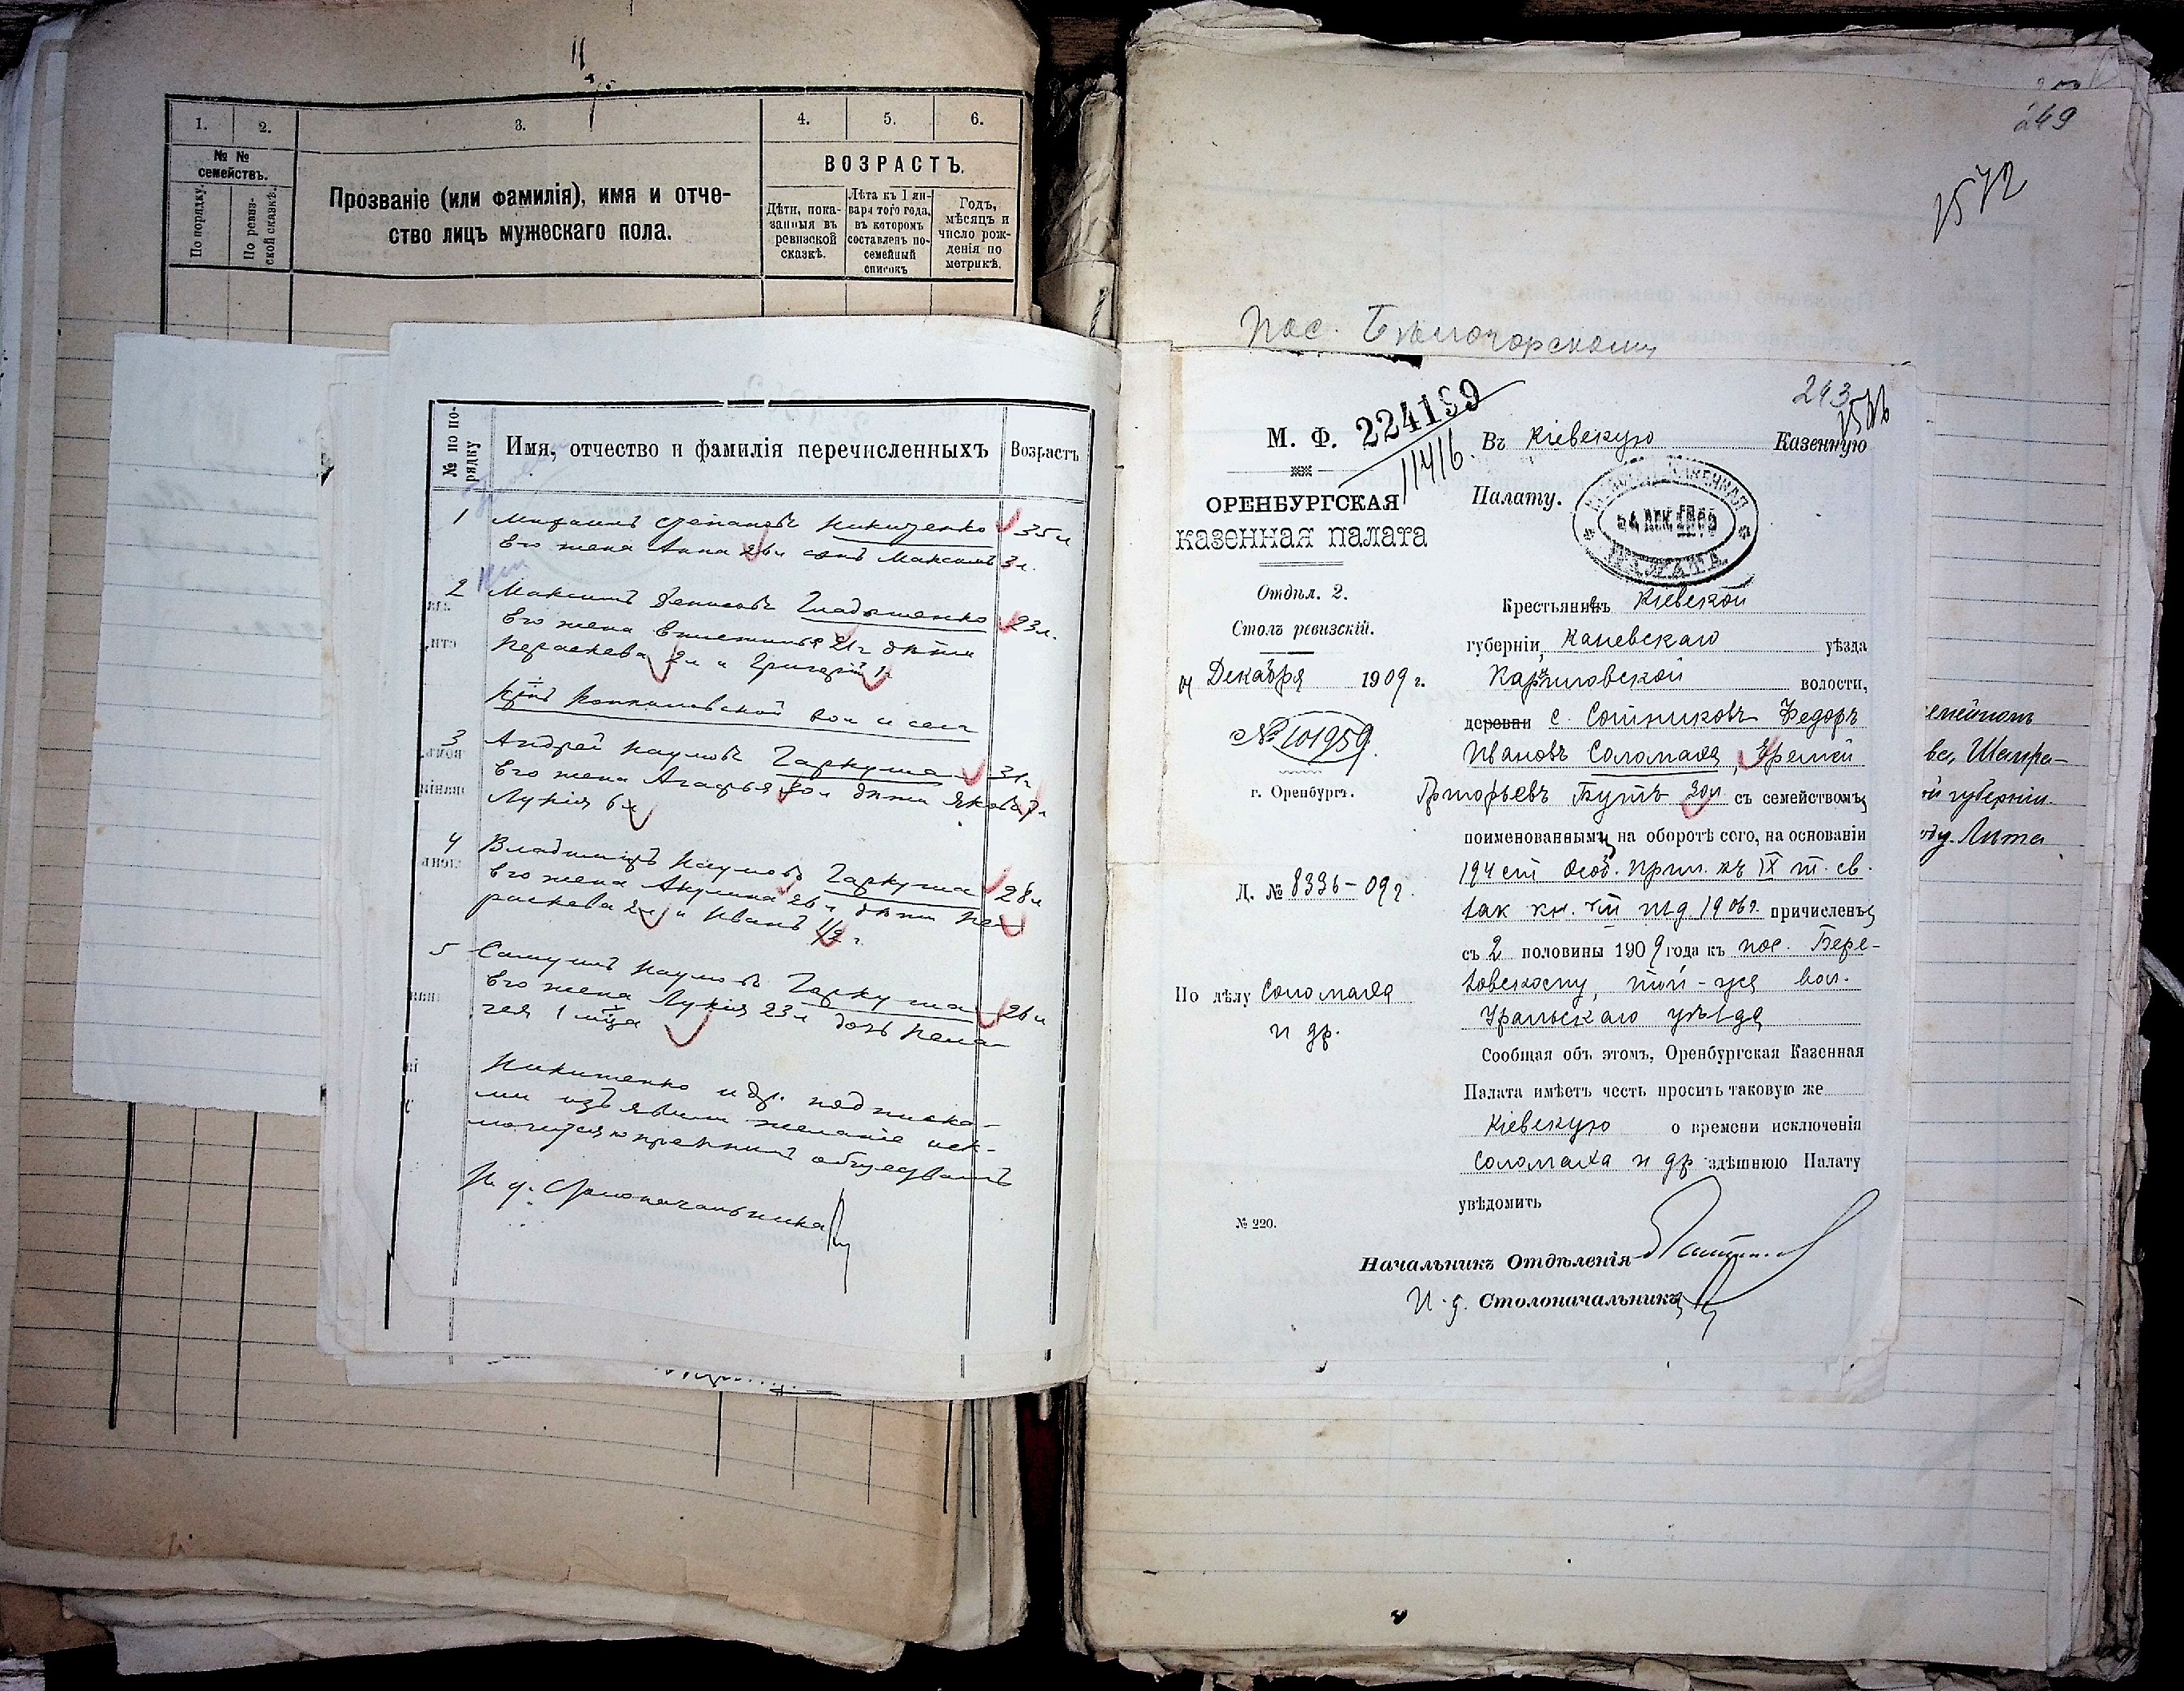 1.
2.
3.
4.
5.
6.
№ №
семействъ.
По порядку.
По ревиз-
ской сказкѣ.
Прозваніе (или фамилія), имя и отче-
ство лицъ мужескаго пола.
ВОЗРАСТЪ.
Дѣти, пока-
занныя въ
ревизской
сказкѣ.
Лѣта къ 1 ян-
варя того года,
въ которомъ
составленъ по-
семейный
списокъ
Годъ,
мѣсяцъ и
число рож-
денія по
метрикѣ.
№ по по-
рядку
Имя, отчество и фамилія перечисленныхъ
Возрастъ
1 Михаилъ Степановъ Никитенко 35 л
Его жена Анна 26 л сынъ Максимъ 3 л.
2 Максимъ Денисовъ Гладышенко 23 л.
Его жена 21 г дѣти
Параскева 2 л и Григорій 1 г
3 Андрей Наумовъ Гаркуша 31 г
Его жена Агафья 30 л дѣти Яковъ 7 л
Лукія 6 л
4 Владимиръ Наумовъ Гаркуша 28 л
Его жена Акулина 26 л дѣти Па-
раскева 2 л и Иванъ 1/2 г.
5 Самуилъ Наумовъ Гаркуша 26 л
Его жена Лукія 23 л дочь Пела-
гея 1 мца
Никитенко и др. подписка-
ми изъявили желаніе иск-
лючиться прежнимъ обществамъ
И. д. Столоначальника
249
1572
пос. Бѣлогорскому
243
М. Ф. 224199
11416.
ОРЕНБУРГСКАЯ
КАЗЕННАЯ ПАЛАТА
Отдѣл. 2.
Столъ ревизскій.
4 Декабря 1909 г.
№ 101959.
г. Оренбургъ.
Д. № 8336-09 г.
По дѣлу Соломаха
и др.
№ 220.
Въ Кіевскую Казенную
Палату.
КАЗЕННАЯ
ПАЛАТА
Крестьянинъ Кіевской
губерніи, Каневскаго уѣзда
волости,
деревни с. Сотниковъ Федоръ
Ивановъ Соломаха, Еремей
Григорьевъ Бутъ 30 л съ семействомъ,
поименованнымъ на оборотѣ сего, на основаніи
194 ст Особ. Прил. къ IX т. св.
зак кн. т'й изд. 1906 г. причислены
съ 2 половины 1909 года къ пос. Бере-
зовскому, той-же вол.
Уральскаго уѣзда
Сообщая объ этомъ, Оренбургская Казенная
Палата имѣетъ честь просить таковую же
Кіевскую о времени исключенія
Соломаха и др здѣшнюю Палату
увѣдомить
Начальникъ Отдѣленія
И. д. Столоначальника